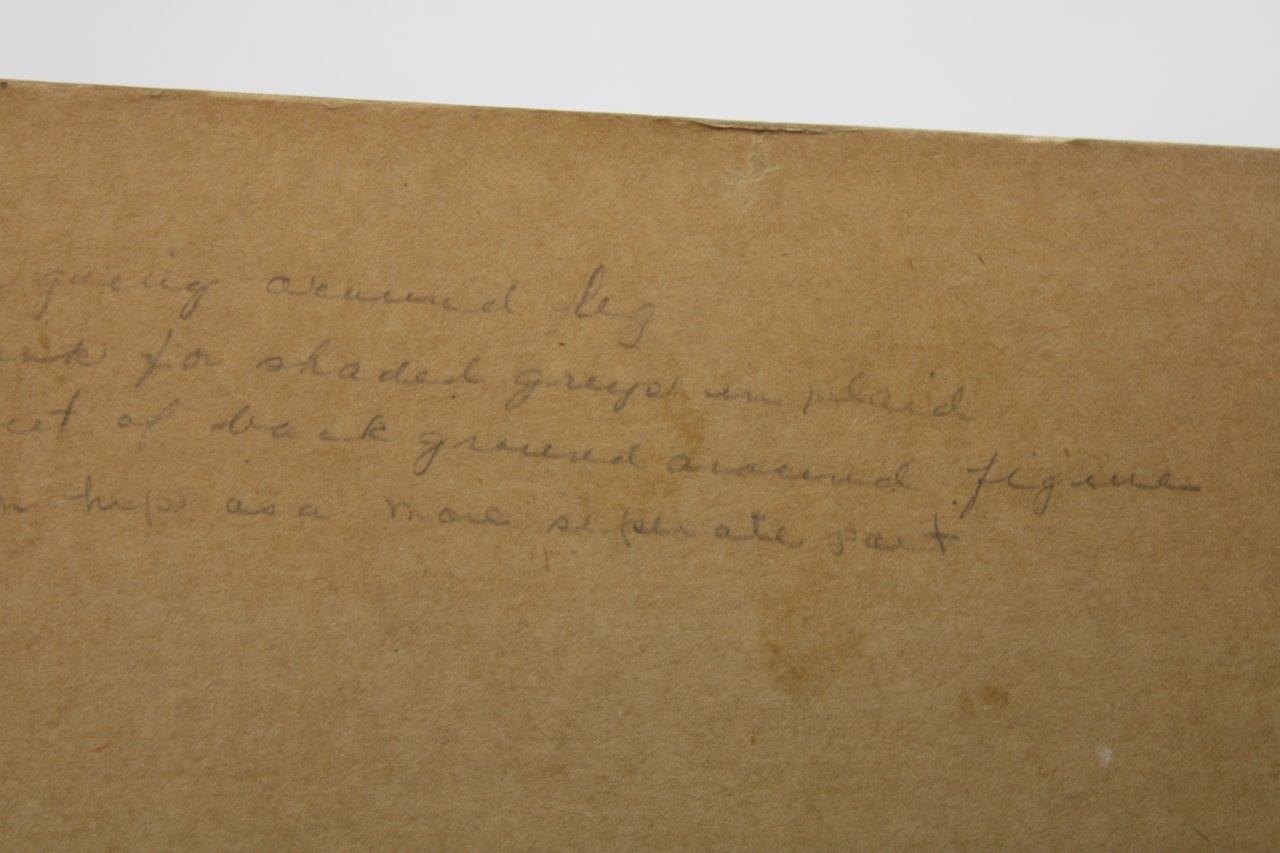 going around leg
for shaded greys in plaid
of back ground around figure
hip as a more seperate part